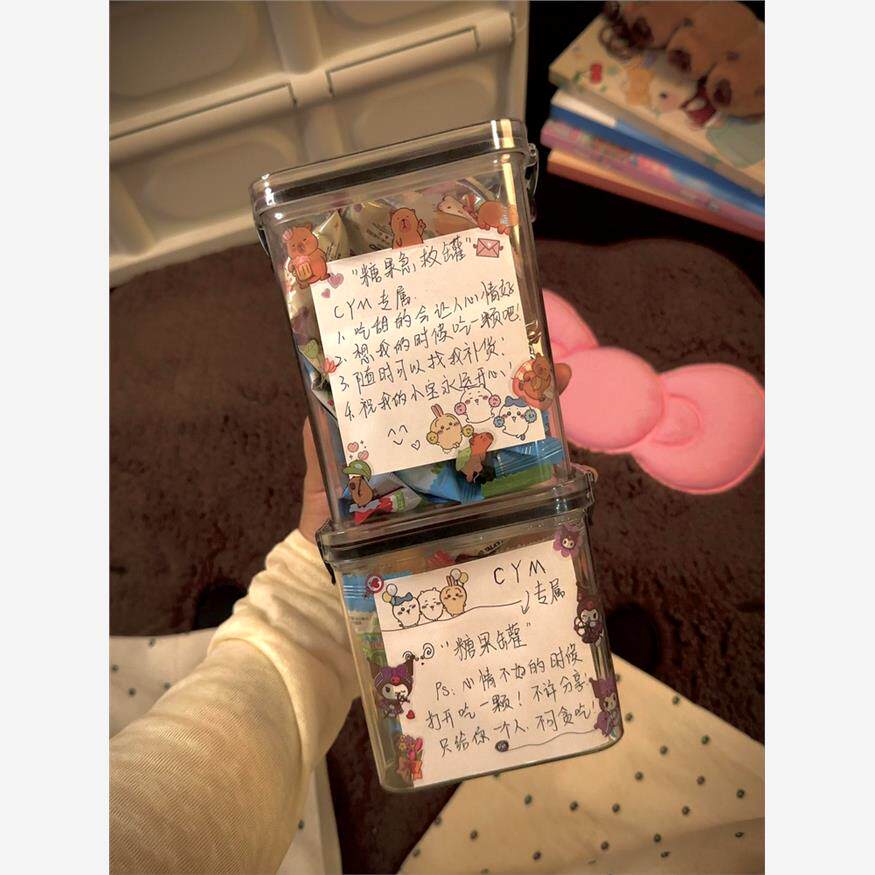 "糖果急救罐"
CYM 专属.
1. 吃甜的会让人心情好
2. 想我的时候吃一颗吧!
3. 随时可以找我补货.
4. 祝我的小宝永远开心!
^^
CYM
专属
"糖果罐"
Ps: 心情不好的时候
打开吃一颗! 不许分享,
只给你一个人. 不可贪吃!